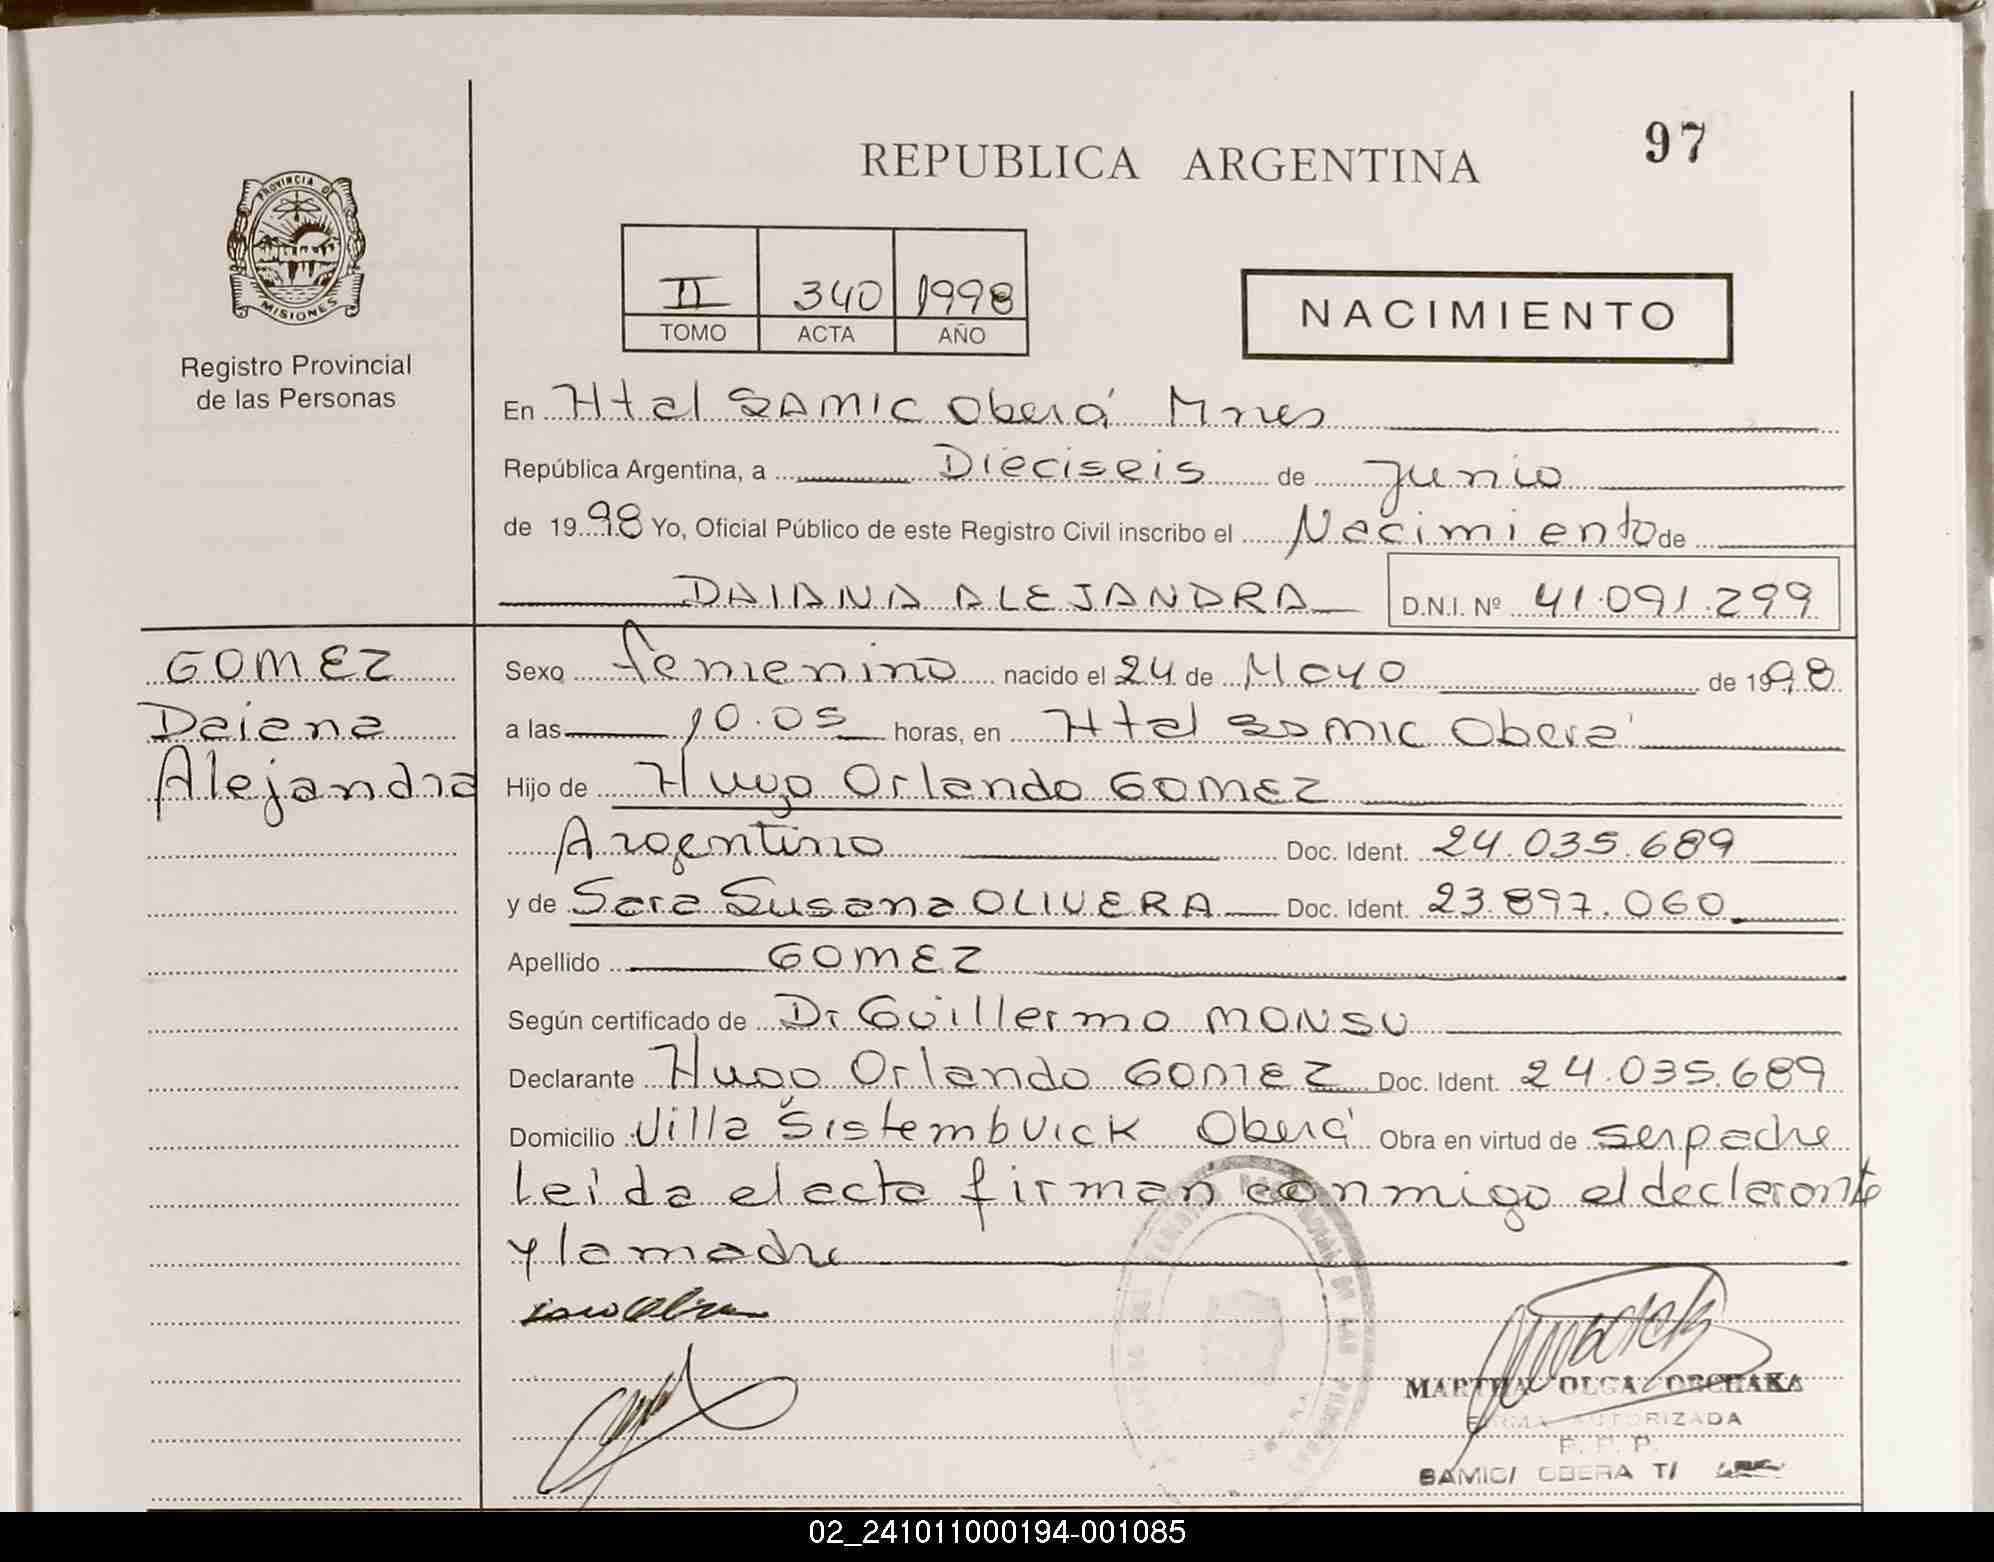 97
REPUBLICA ARGENTINA
PROVINCIA DE
MISIONES
Registro Provincial
de las Personas
II 340 1998
TOMO ACTA AÑO
NACIMIENTO
En Htal SAMIC Oberá Mnes
República Argentina, a Dieciseis de Junio
de 1998 Yo, Oficial Público de este Registro Civil inscribo el Nacimiento de
DAIANA ALEJANDRA D.N.I. Nº 41.091.299
GOMEZ
Daiana
Alejandra
Sexo femenino nacido el 24 de Mayo de 1998
a las 10.05 horas, en Htal SAMIC Oberá
Hijo de Hugo Orlando GOMEZ
Argentino Doc. Ident. 24.035.689
y de Sara Susana OLIVERA Doc. Ident. 23.897.060
Apellido GOMEZ
Según certificado de Dr Guillermo MONSU
Declarante Hugo Orlando GOMEZ Doc. Ident. 24.035.689
Domicilio Villa Sistembuick Oberá Obra en virtud de ser padre
Leída el acta firman conmigo el declarante
y la madre
MARTHA OLGA OBCHAKA
FIRMA AUTORIZADA
R. P. P.
SAMIC/ OBERA T/
02_241011000194-001085